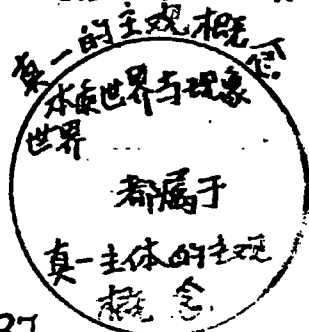 真一的主观概念
本体世界与现象
世界
都属于
真一主体的主观
概念
27